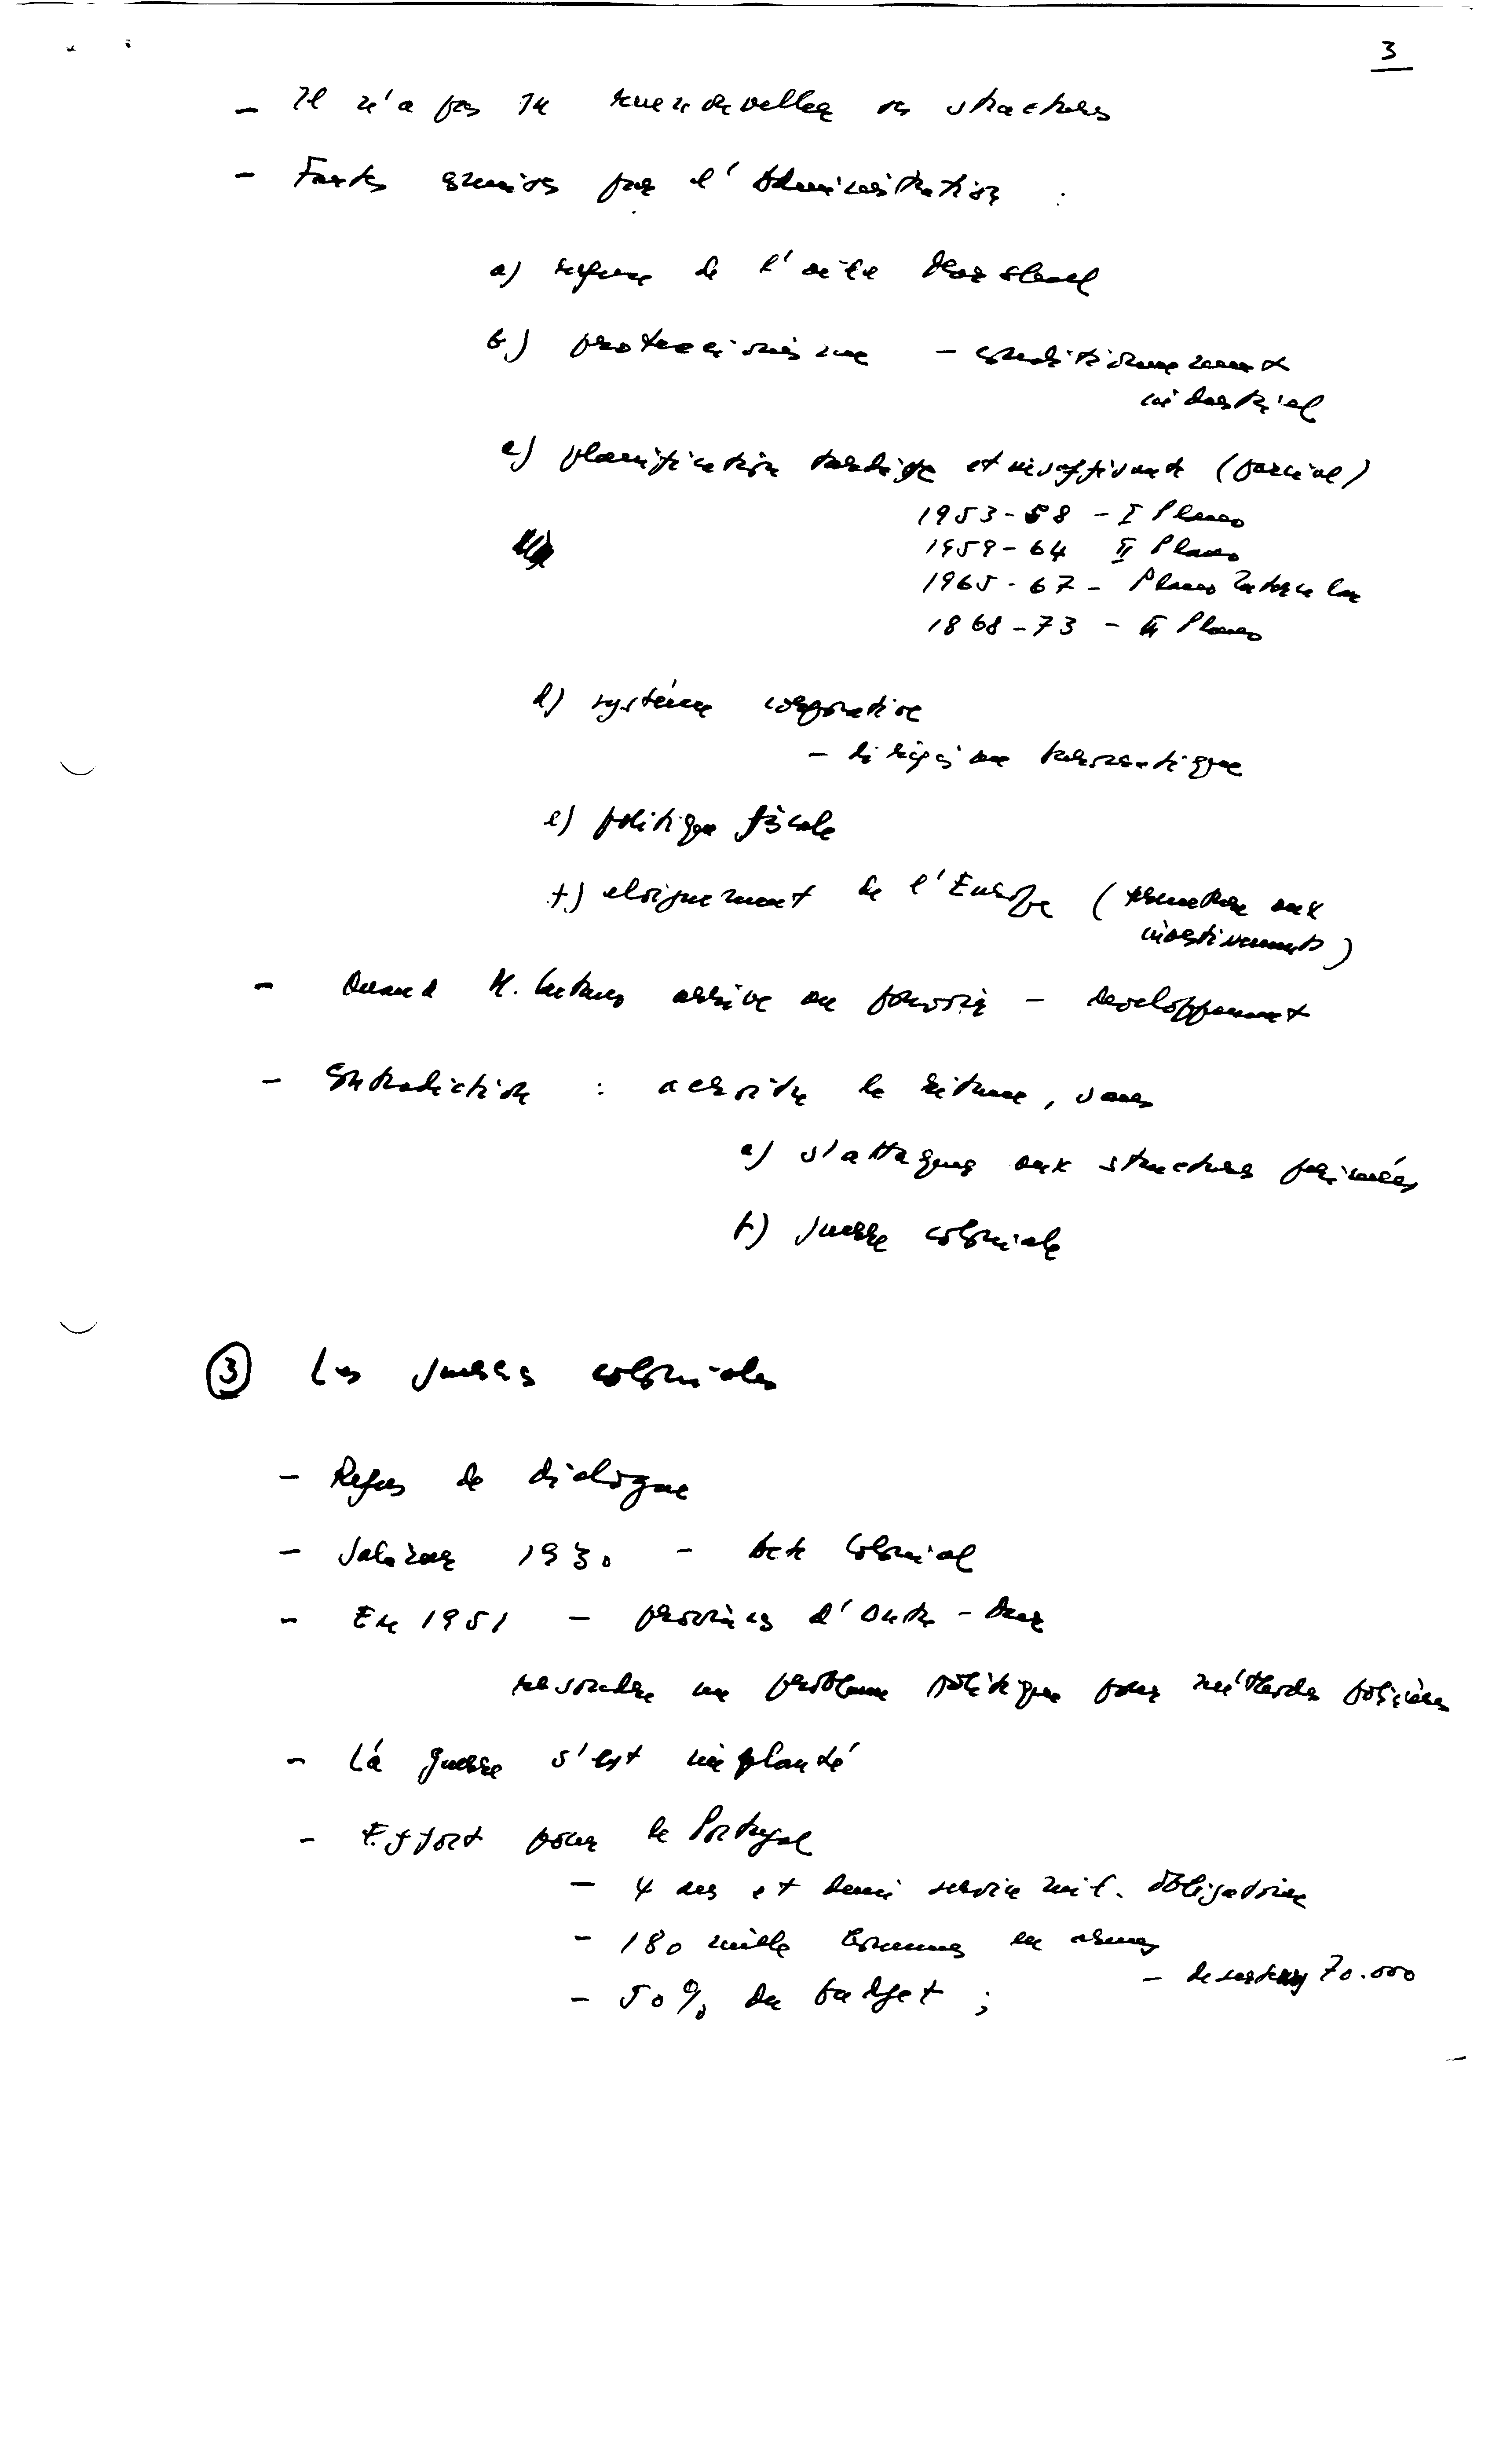 3
- Il n'a pas su renouveller ses structures
- Fautes commises par l'Administration :
a) refus de l'aide Marshall
b) protecionisme - conditionnement
industriel
c) planification tardive et insuffisante (parcial)
1953-58 - I Plano
1959-64 II Plano
1965-67 - Plano Intercalar
1868-73 - III Plano
d) système corporative
- dirigisme
e) politique fiscale
f) eloignement de l'Europe ( aux
investissements)
- Quand M. Caetano arrive au pouvoir - developpement
- Contradiction : acroitre le ritme, sans
a) s'attaquer aux structures périmées
b) guerre coloniale
③ Les guerres coloniales
- Refus de dialogue
- Salazar 1930 - Acte Colonial
- En 1951 - provinces d'Outre-Mer
resoudre un probleme politique par méthodes policières
- Lá guerre s'est implanté
- Effort pour le Portugal
- 4 ans et demi service mil. obligatoire
- 180 mille hommes en armes
- deserteurs 70.000
- 50% du budget ;